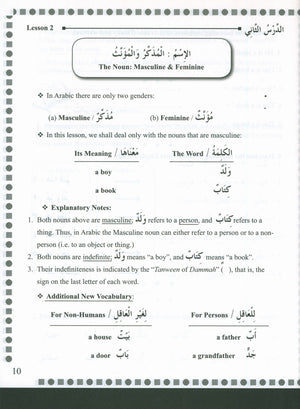 Lesson 2 الدَّرْسُ الثَّانِي
الإِسْمُ : الْمُذَكَّرُ وَالْمُؤَنَّثُ
The Noun: Masculine & Feminine
❖ In Arabic there are only two genders:
(a) Masculine / مُذَكَّرٌ (b) Feminine / مُؤَنَّثٌ
❖ In this lesson, we shall deal only with the nouns that are masculine:
Its Meaning / مَعْنَاهَا The Word / الْكَلِمَةُ
a boy وَلَدٌ
a book كِتَابٌ
❖ Explanatory Notes:
1. Both nouns above are masculine; وَلَدٌ refers to a person, and كِتَابٌ refers to a
thing. Thus, in Arabic the Masculine noun can either refer to a person or to a non-
person (i.e. to an object or thing.)
2. Both nouns are indefinite; وَلَدٌ means "a boy", and كِتَابٌ means "a book".
3. Their indefiniteness is indicated by the "Tanween of Dammah" ( ٌ ), that is, the
sign on the last letter of each word.
❖ Additional New Vocabulary:
For Non-Humans / لِغَيْرِ الْعَاقِلِ For Persons / لِلْعَاقِلِ
a house بَيْتٌ a father أَبٌ
a door بَابٌ a grandfather جَدٌّ
10